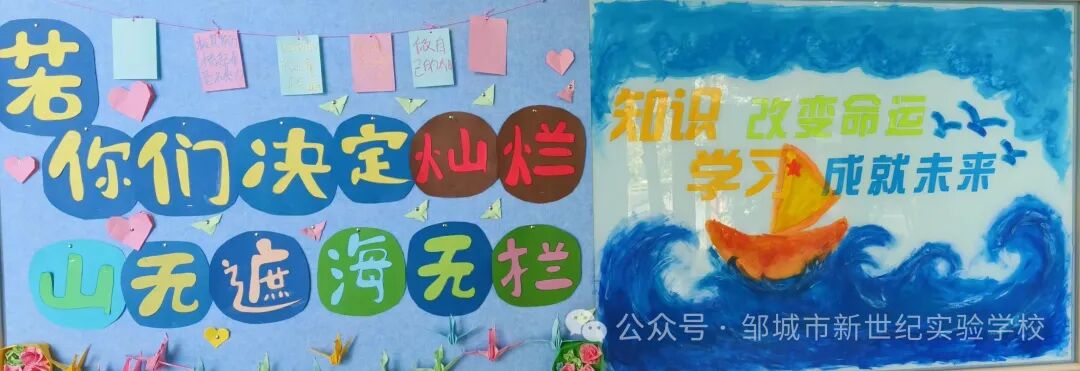 若
你们决定灿烂
山无遮海无拦
做自
己的
知识 改变命运
学习 成就未来
公众号·邹城市新世纪实验学校